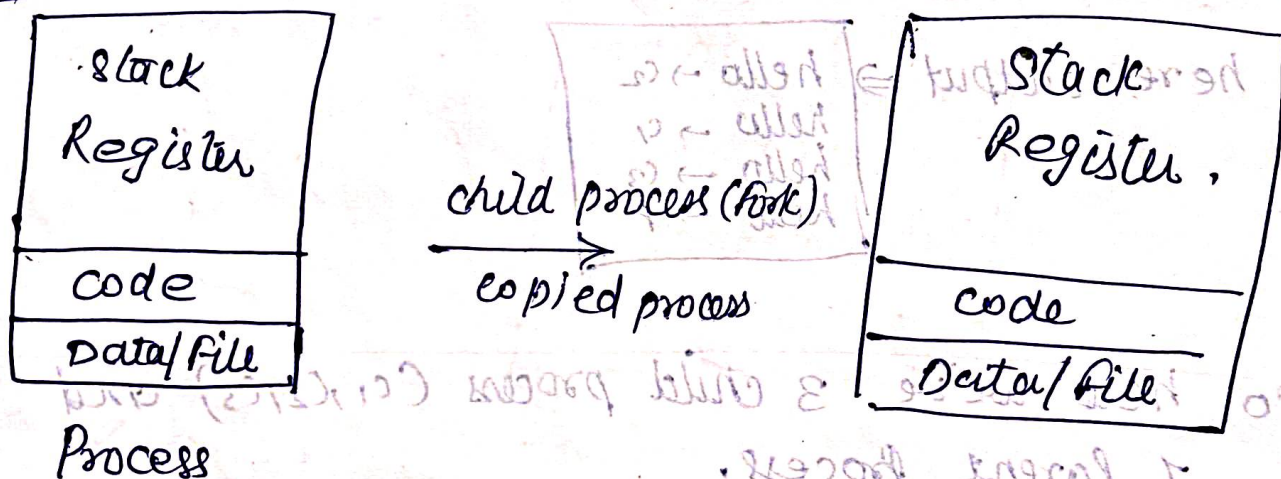 Stack
Register
code
Data/File
Process
child process (fork)
copied process
Stack
Register.
code
Data/File